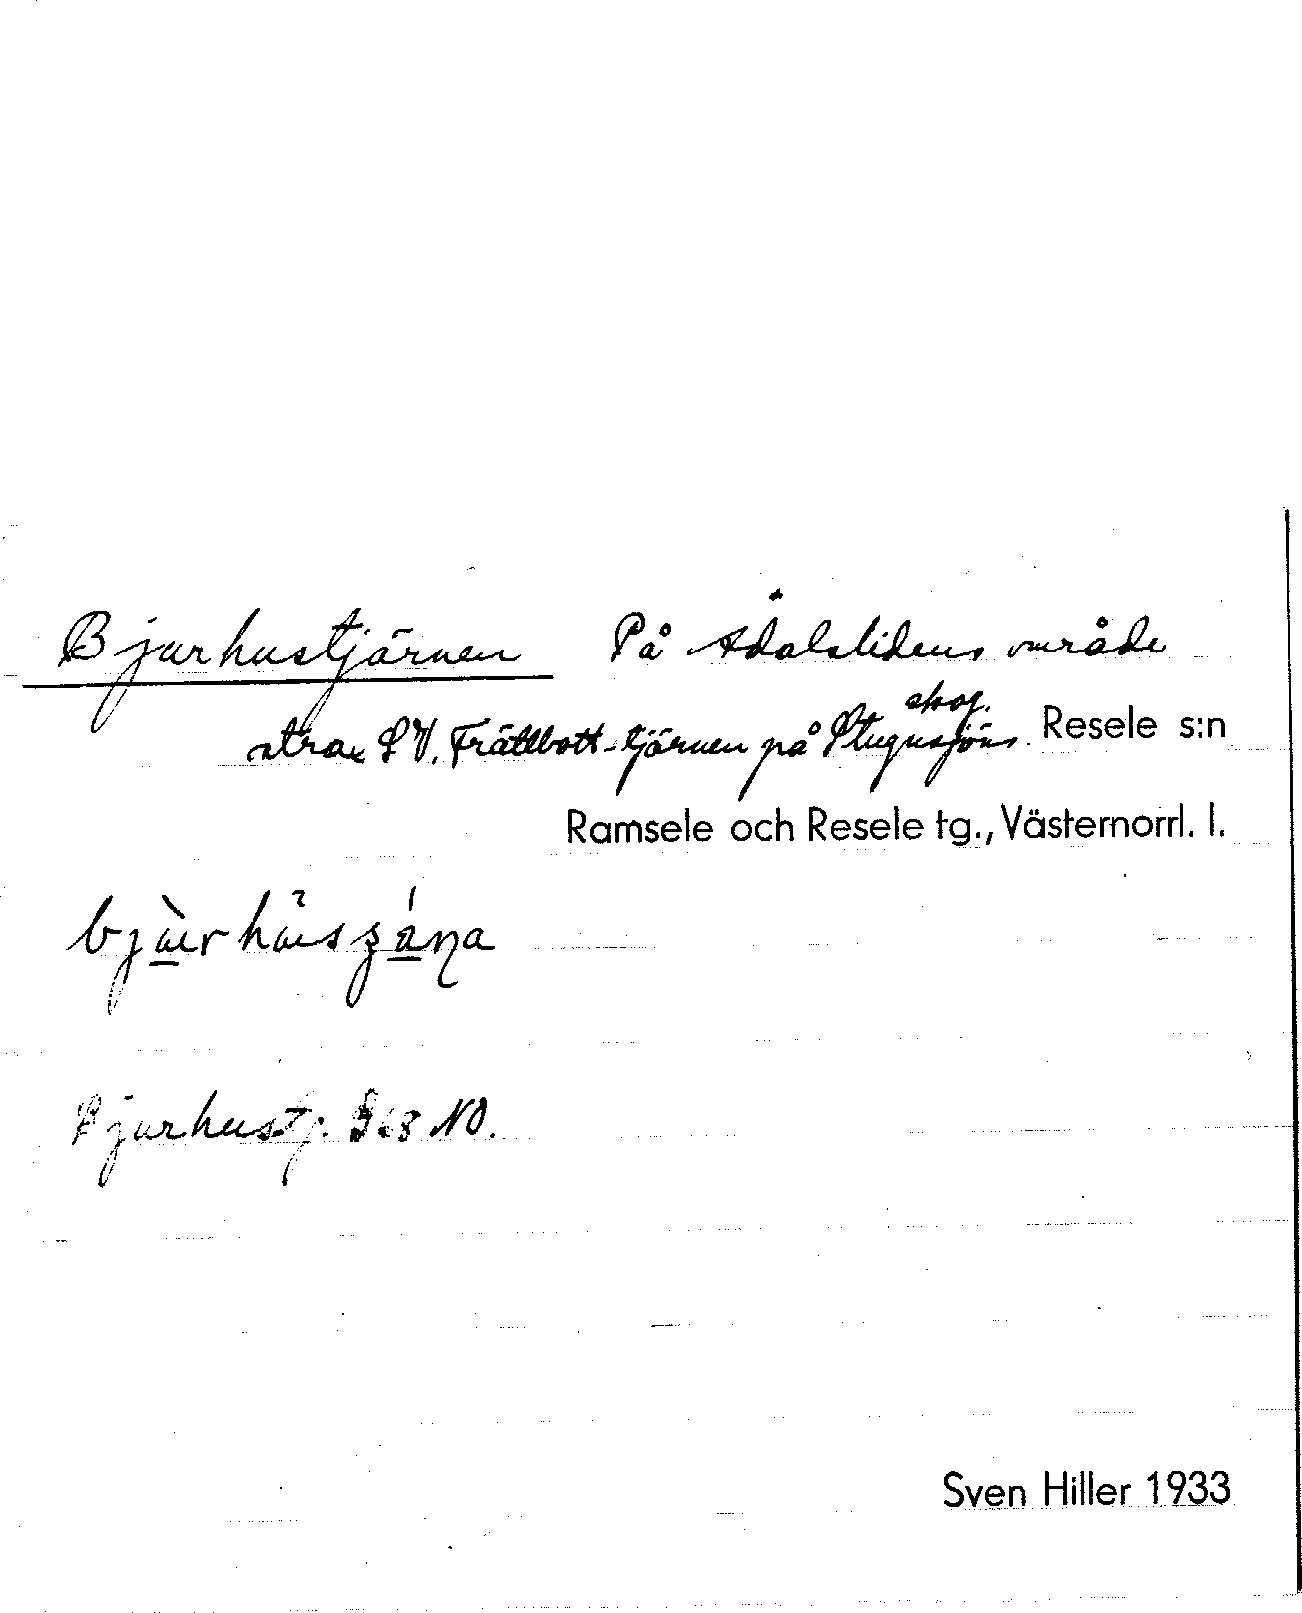 Bjurhustjärnen På Ådalslidens område
strax S V. Frättbott-tjärnen på Stugusjöns skog. Resele s:n
Ramsele och Resele tg., Västernorrl. l.
Bjurhustj. NO.
Sven Hiller 1933